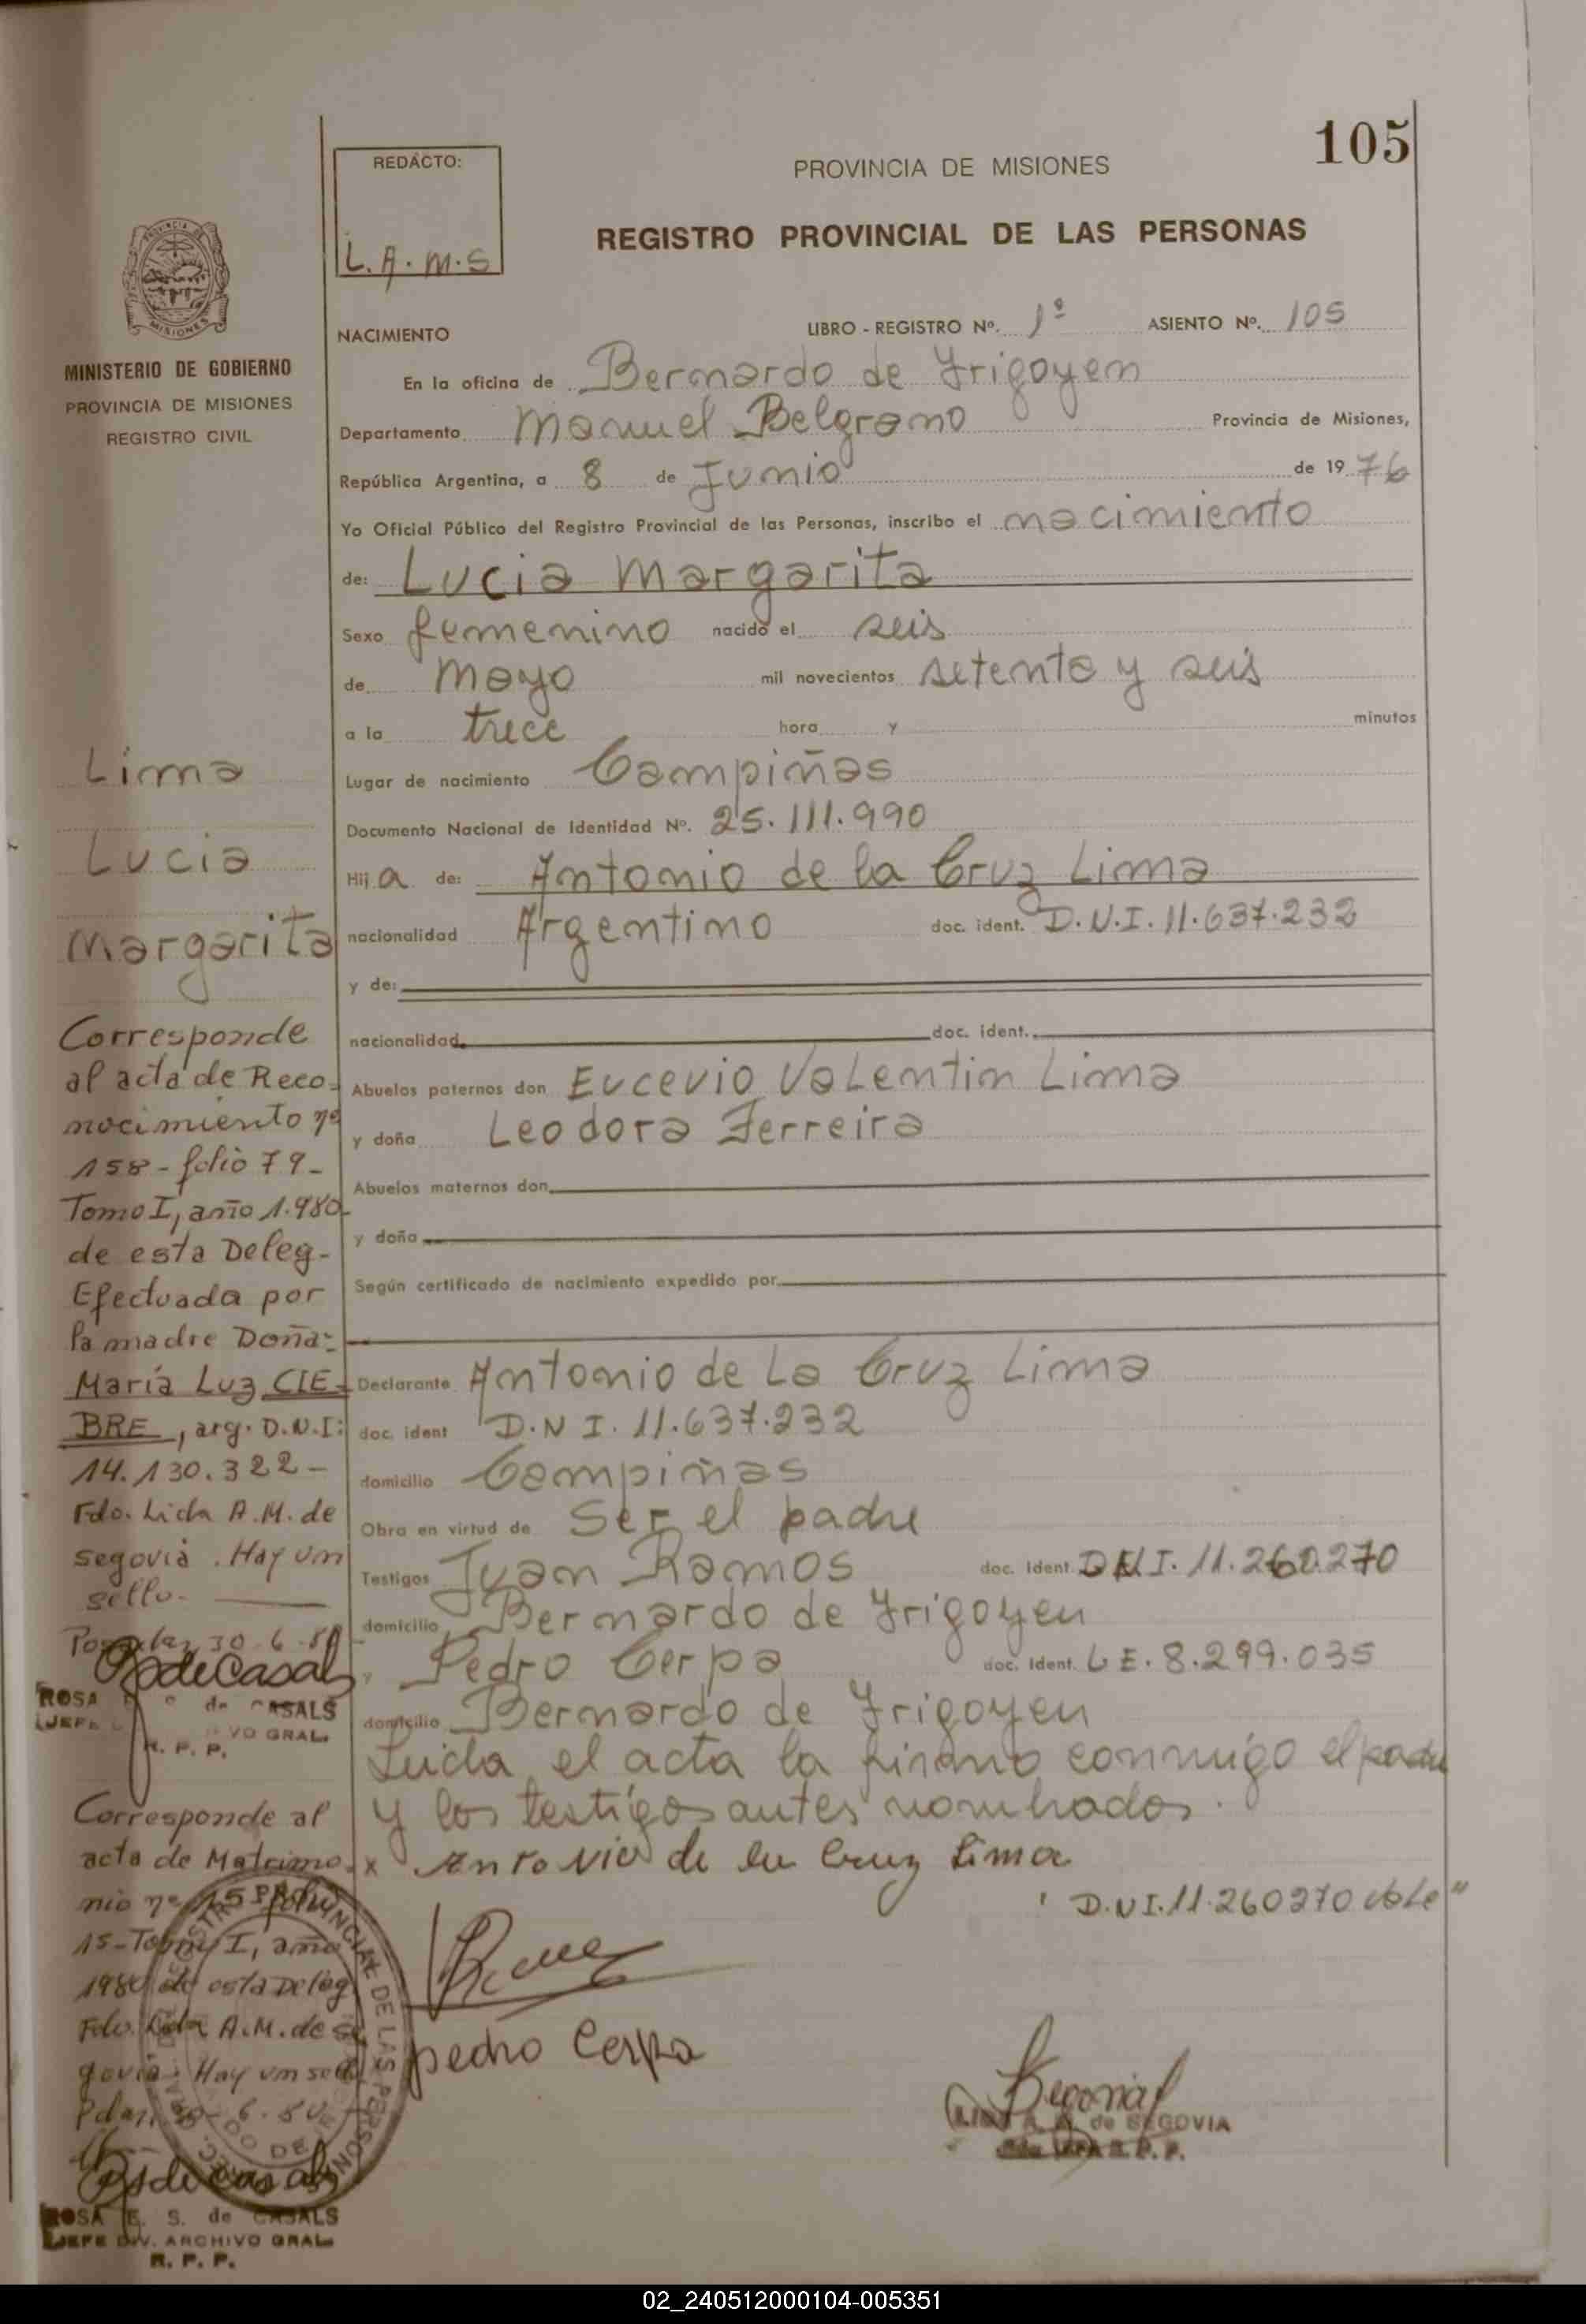 105
REDACTO:
L.A.M.S
PROVINCIA DE MISIONES
REGISTRO PROVINCIAL DE LAS PERSONAS
MISIONES
MINISTERIO DE GOBIERNO
PROVINCIA DE MISIONES
REGISTRO CIVIL
NACIMIENTO LIBRO - REGISTRO Nº. 1º ASIENTO Nº. 105
En la oficina de Bernardo de Yrigoyen
Departamento Manuel Belgrano Provincia de Misiones,
República Argentina, a 8 de Junio de 1976
Yo Oficial Público del Registro Provincial de las Personas, inscribo el nacimiento
de: Lucia Margarita
Sexo femenino nacido el seis
de mayo mil novecientos setenta y seis
a la trece hora y minutos
Lugar de nacimiento Campiñas
Documento Nacional de Identidad Nº. 25.111.990
Hija de: Antonio de la Cruz Lima
nacionalidad Argentino doc. ident. D.N.I. 11.637.232
y de:
nacionalidad doc. ident.
Abuelos paternos don Eucevio Valentin Lima
y doña Leodora Ferreira
Abuelos maternos don
y doña
Según certificado de nacimiento expedido por
Declarante Antonio de La Cruz Lima
doc. ident D.N I. 11.637.232
domicilio Campiñas
Obra en virtud de Ser el padre
Testigos Juan Ramos doc. ident. DNI. 11.260.270
domicilio Bernardo de Yrigoyen
y Pedro Cerpa doc. ident. L E. 8.299.035
domicilio Bernardo de Yrigoyen
Leida el acta la firman conmigo el padre
y los testigos antes nombrados.
x Antonio de la Cruz Lima
"D.N I. 11.260270 vale"
pedro Cerpa
Segovia
LIDA A. M. de SEGOVIA
R. P. P.
Lima
Lucia
Margarita
Corresponde
al acta de Reco-
nocimiento nº
158 - folio 79 -
Tomo I, año 1.980-
de esta Deleg-
Efectuada por
la madre Doña:
María Luz CIE-
BRE, arg. D.N.I:
14.130.322 -
Fdo. Lida A.M. de
Segovia. Hay un
sello.
Posadas 30-6-80
RdeCasals
ROSA de CASALS
JEFE VO GRAL.
R. P. P.
Corresponde al
acta de Matrimo-
nio nº 15 folio
15 - Tomo I, año
1980 de esta Deleg
Fdo. Lida A.M. de Se
govia. Hay un sello
Pdas. 30-6-80
REGISTRO PROVINCIAL DE LAS PERSONAS
RsdeCasals
ROSA E. S. de CASALS
JEFE DIV. ARCHIVO GRAL.
R. P. P.
02_240512000104-005351